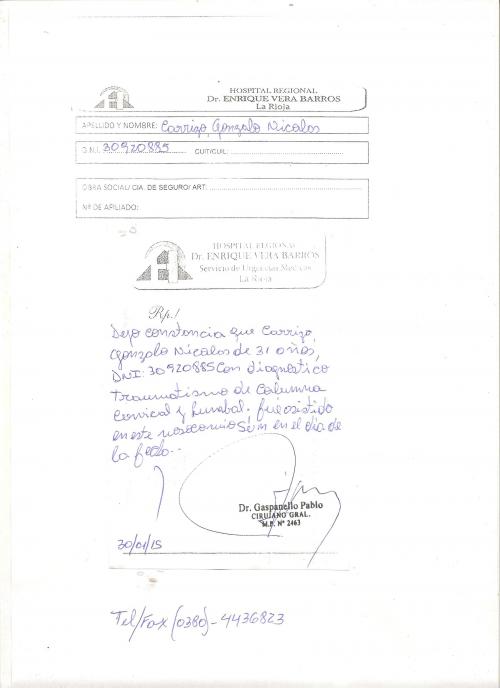 HOSPITAL REGIONAL
Dr. ENRIQUE VERA BARROS
La Rioja
APELLIDO Y NOMBRE: Carrizo, Gonzalo Nicolas
D.N.I. 30920885 CUIT/CUIL:
OBRA SOCIAL/ CIA. DE SEGURO/ ART:
Nº DE AFILIADO:
HOSPITAL REGIONAL
Dr. ENRIQUE VERA BARROS
Servicio de Urgencias Médicas
La Rioja
Rp./
Dejo constancia que Carrizo,
Gonzalo Nicolas de 31 años,
DNI: 30920885 Con diagnostico
traumatismo de Columna
Cervical y lumbal. fue asistido
en este nosocomio en el dia de
la fecha..
Dr. Gaspanello Pablo
CIRUJANO GRAL.
M.P. Nº 2463
30/01/15
Tel/Fax (0380)-4436823